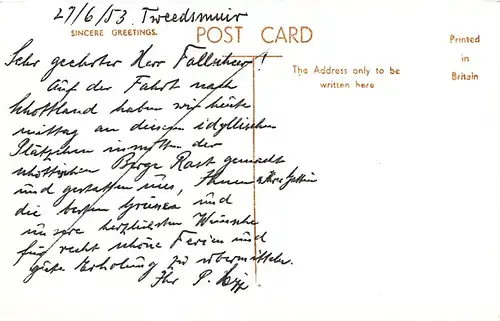 27/6/53 Tweedsmuir
SINCERE GREETINGS.
POST CARD
Printed
in
Britain
The Address only to be
written here
Sehr geehrter Herr !
Auf der Fahrt nach
Schottland haben wir heute
mittag an diesem idyllischen
Plätzchen inmitten der
schottischen Berge Rast gemacht
und gestatten uns, Ihnen u. Ihrer Gattin
die besten Grüsse und
unsre herzlichsten Wünsche
für recht schöne Ferien und
gute Erholung zu übermitteln.
Ihr P.